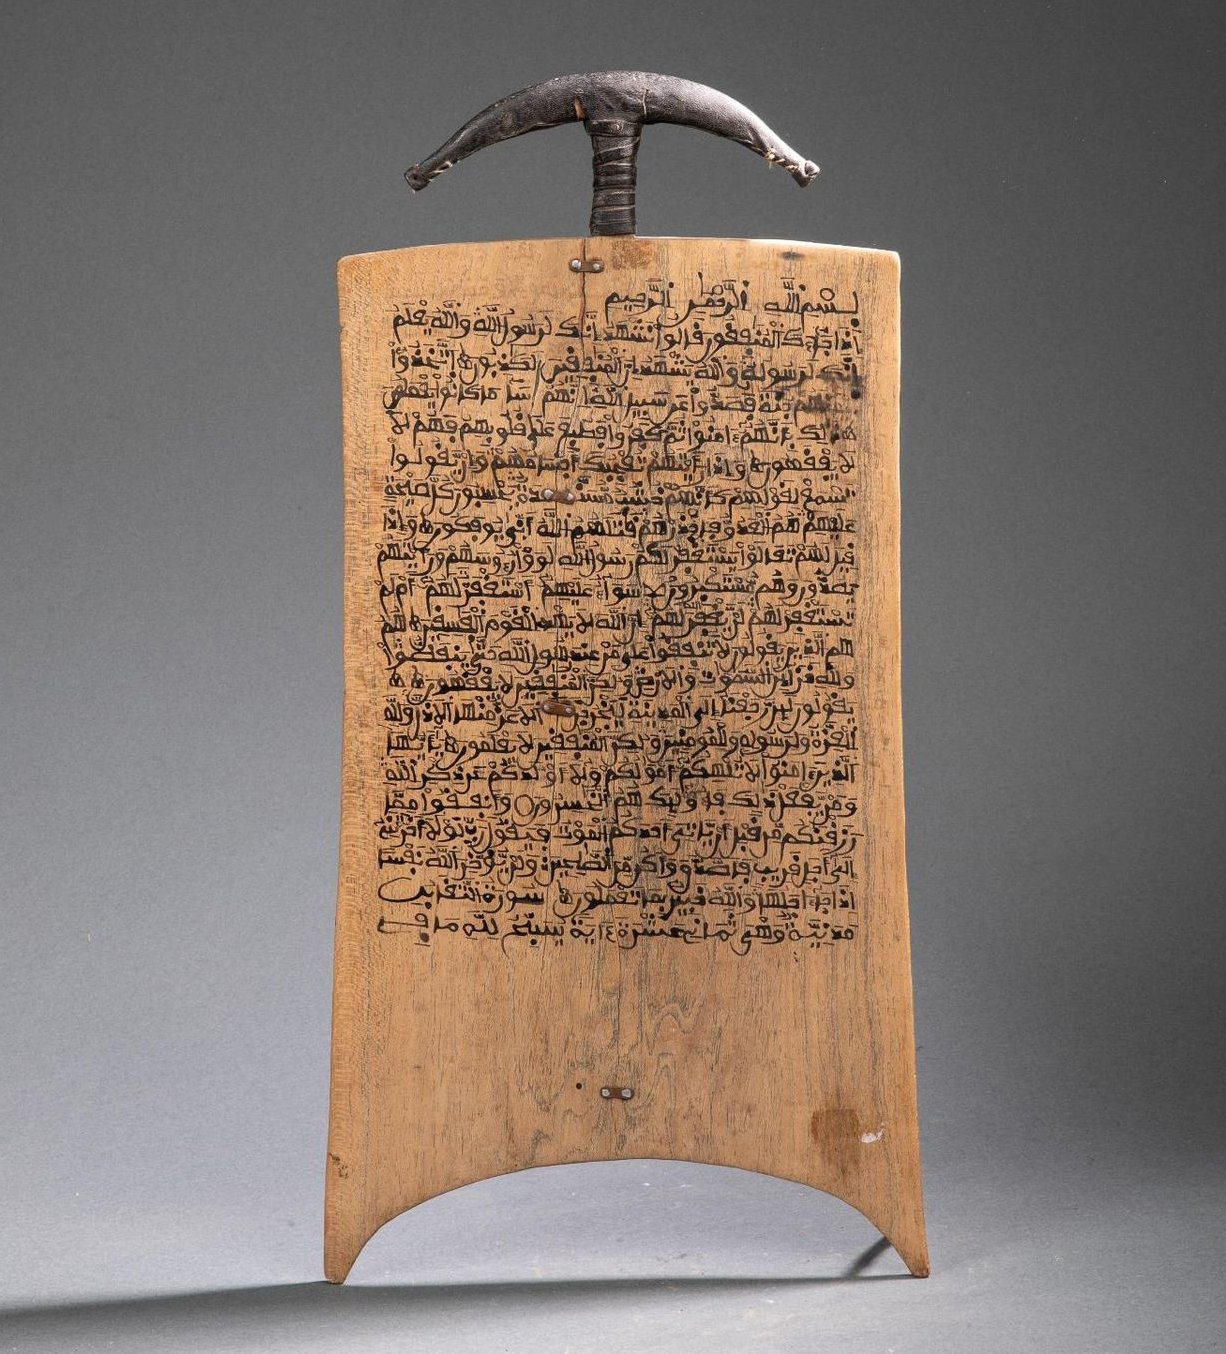 بسم الله الرحمن الرحيم
إذا جاءك المنفقون قالوا نشهد إنك لرسول الله والله يعلم
إنك لرسوله والله يشهد إن المنفقين لكذبون اتخذوا
أيمنهم جنة فصدوا عن سبيل الله إنهم سا ما كانوا يعملون
ذلك بأنهم ءامنوا ثم كفروا فطبع على قلوبهم فهم لا
لا يفقهون وإذا رأيتهم تعجبك أجسامهم وإن يقولوا
تسمع لقولهم كأنهم خشب مسندة يحسبون كل صيحة
عليهم هم العدو فاحذرهم قتلهم الله أنى يوفكون وإذا
قيل لهم تعالوا يستغفر لكم رسول الله لووا روسهم ورأيتهم
يصدون وهم مستكبرون سواء عليهم أستغفرت لهم أم لم
تستغفر لهم لن يغفر الله لهم إن الله لا يهد القوم الفسقين هم
هم الذين يقولون لا تنفقوا على من عند رسول الله حتى ينفضوا
ولله خزائن السموت والأرض ولكن المنفقين لا يفقهون
يقولون لين رجعنا إلى المدينة ليخرجن الأعز منها الأذل ولله
العزة ولرسوله وللمومنين ولكن المنفقين لا يعلمون يأيها
الذين ءامنوا لا تلهكم أمولكم ولا أولدكم عن ذكر الله
ومن يفعل ذلك فأوليك هم الخسرون وأنفقوا مما
رزقنكم من قبل أن ياتي أحدكم الموت فيقول رب لولا أخرتني
إلى أجل قريب فأصدق وأكن من الصلحين ولن يوخر الله نفسا
إذا جاء أجلها والله خبير بما تعملون سورة التغابن
مدنية وهي ثماني عشرة ءاية يسبح لله ما في